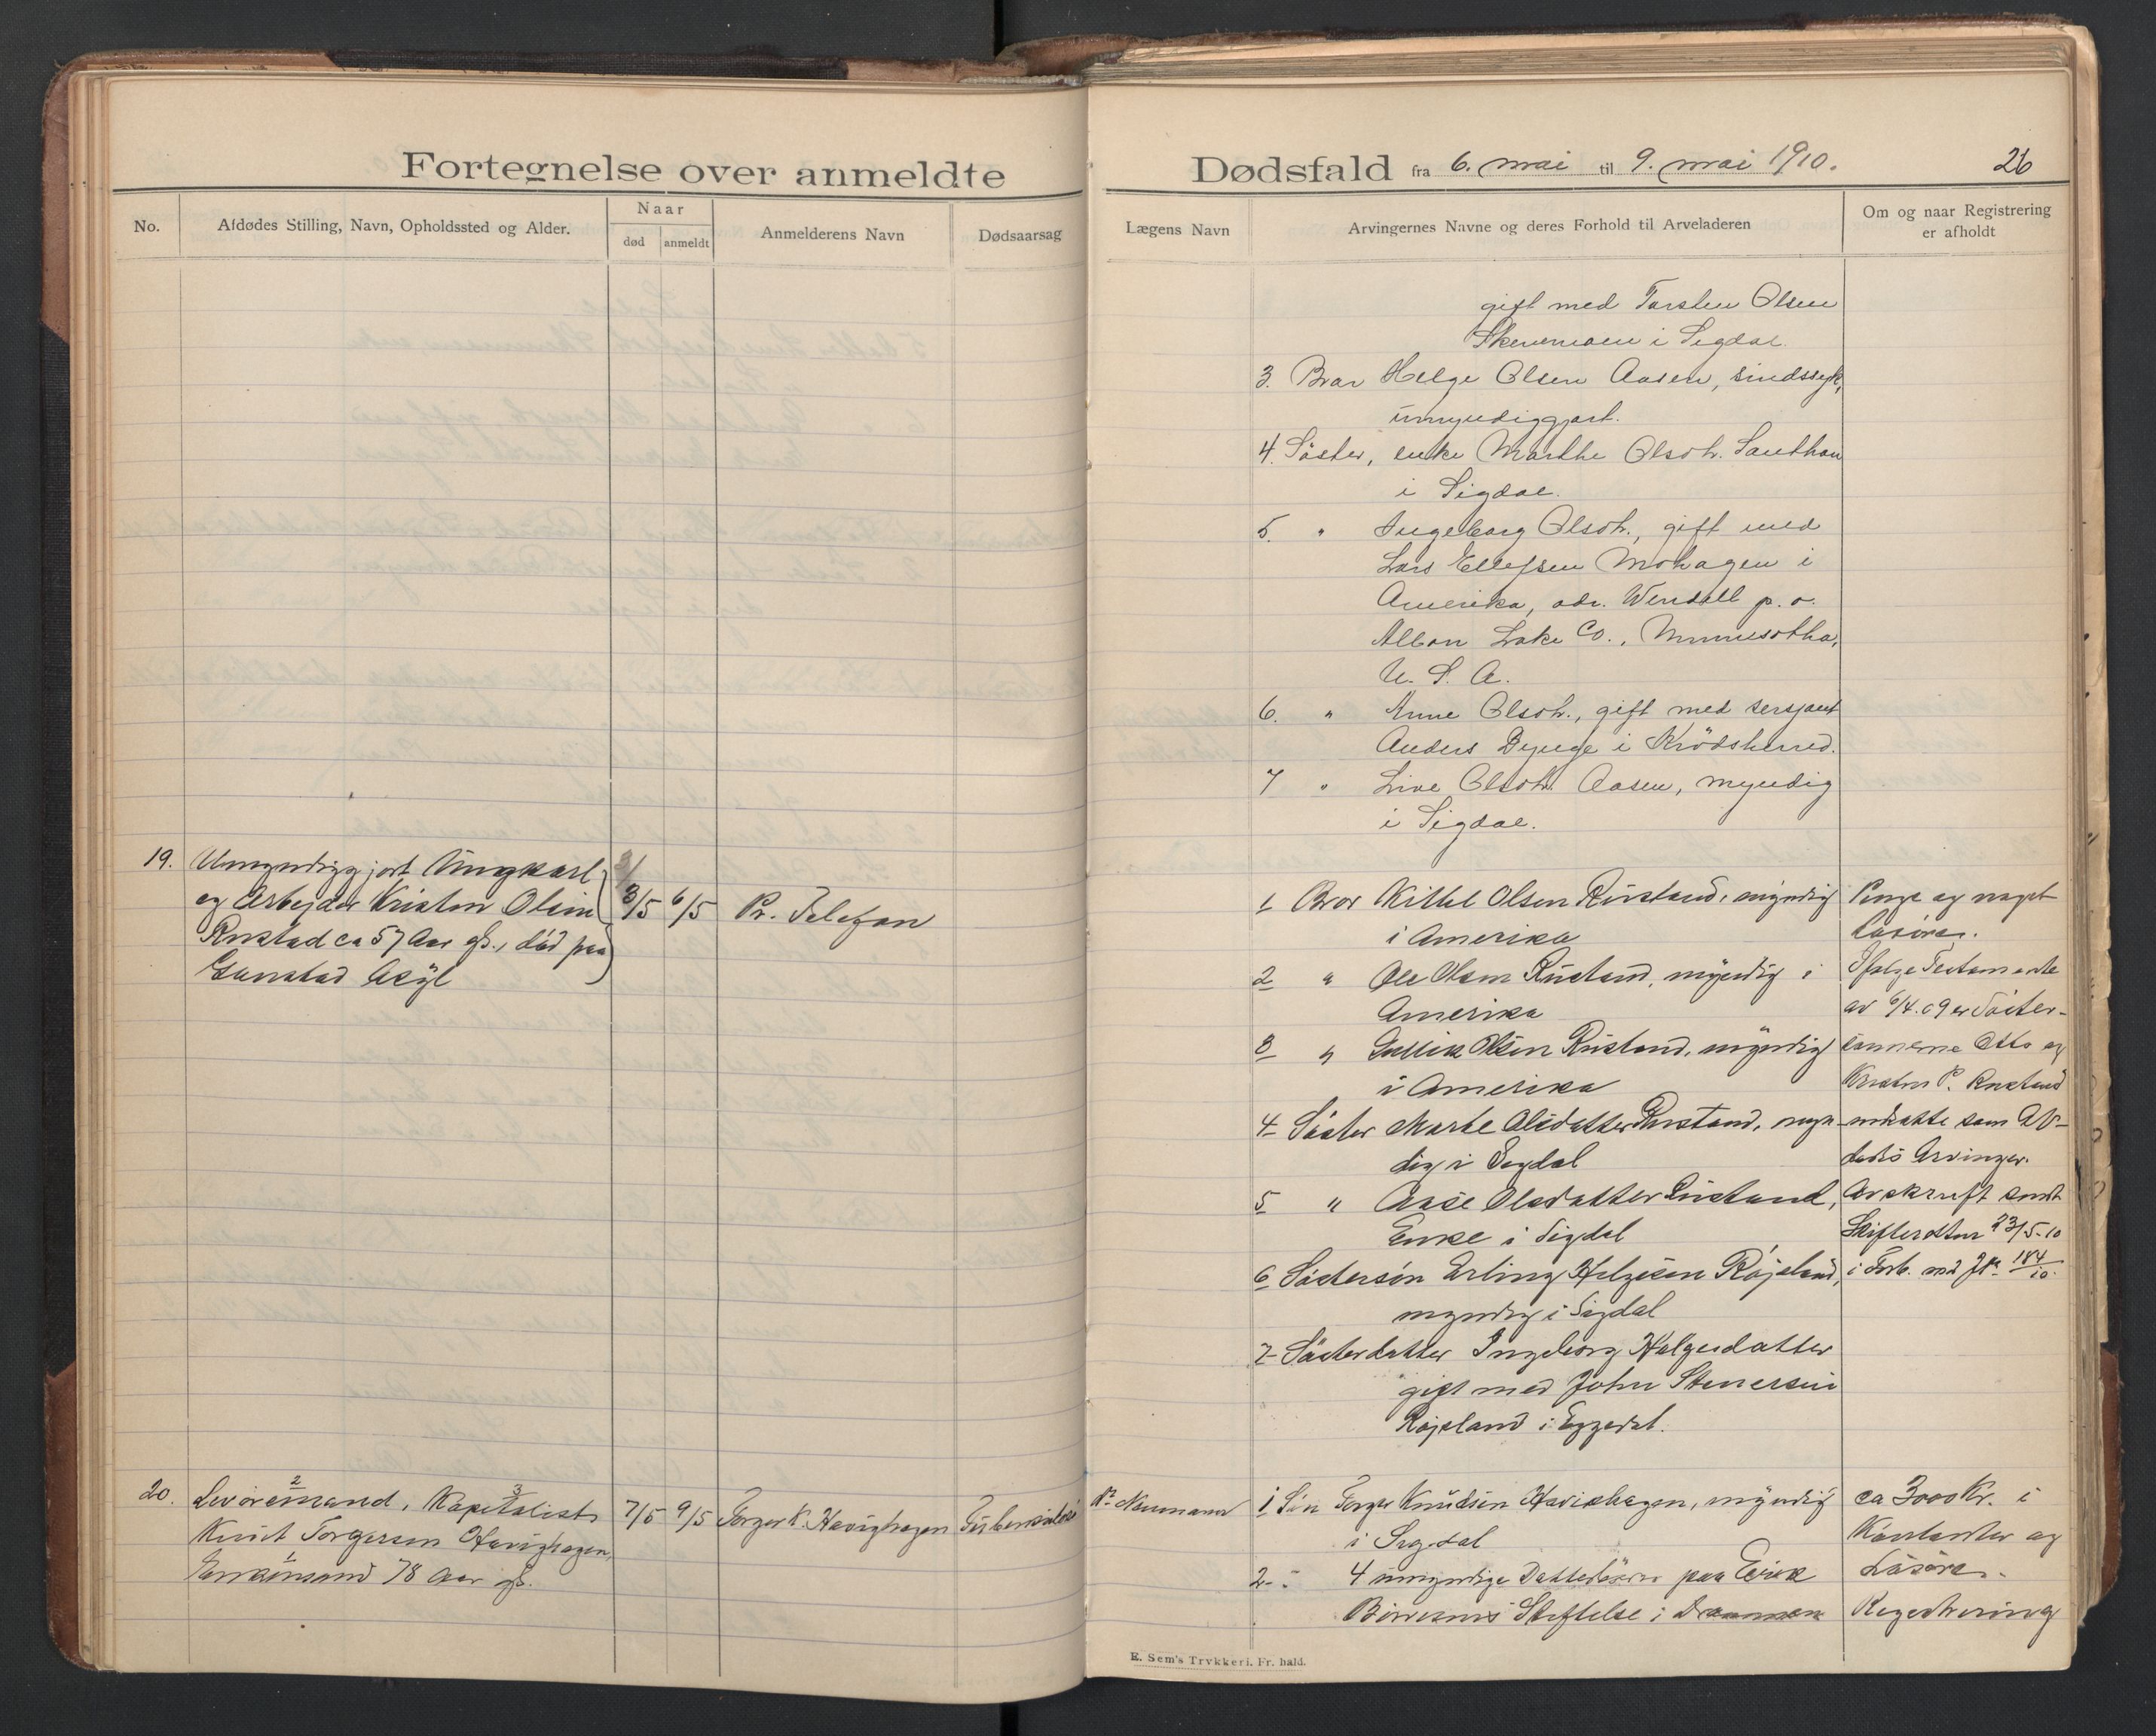 Fortegnelse over anmeldte
Dødsfald fra 6. mai til 9. mai 1910.
26
No.
Afdødes Stilling, Navn, Opholdssted og Alder.
Naar
død
anmeldt
Anmelderens Navn
Dødsaarsag
Lægens Navn
Arvingernes Navne og deres Forhold til Arveladeren
Om og naar Registrering
er afholdt
gift med Torsten Olsen
i Sigdal.
3. Bror Helge Olsen Aasen, sindssyk,
umyndiggjort.
4. Söster, enke Marthe Olsdt.
i Sigdal.
5. " Ingeborg Olsdt., gift med
Lars Ellefsen Mohagen i
Amerika, adr. Wendall p. o.
Albon Lake Co., Minnesotha,
U. S. A.
6. " Anne Olsdt., gift med sersjant
Anders Bjenge i Krödsherred.
7 " Live Olsdt. Aasen, myndig
i Sigdal.
19. Umyndiggjort Ungkarl
og Arbejder Kristen Olsen
Rustad ca 57 Aar gl., död paa
Asyl
3/5 6/5 Pr. Telefon
1 Bror Kittel Olsen Rustand, myndig
i Amerika
2 " Ole Olsen Rustand, myndig i
Amerika
3 " Gullik Olsen Rustand, myndig
i Amerika
4 Söster Marte Olsdatter Rustand, myn-
dig i Sigdal
5 " Aase Olsdatter Rustand,
Enke i Sigdal
6 Söstersön Erling Helgesen Röjsland,
myndig i Sigdal
7 Sösterdatter Ingeborg Helgesdatter
gift med John Stenersen
Röjsland i Eggedal.
Penge og noget
Lösöre.
Ifølge Testamente
av 6/4.09 er Söster-
sønnerne Otto og
Kristen P. Rustand
indsatte som Af-
dødes Arvinger.
Avskrift sendt
Skifteretten 23/5-10
i Forb. med Jr. 184/10.
20. Levöremand, Kapitalist
Knut Torgersen Havighagen,
Enkemand 78 Aar gl.
7/5 9/5 Torger K. Havighagen Tuberkulose
Dr. Neumann
1 Sön Torger Knudsen Havighagen, myndig
i Sigdal
2 - 4 umyndige Datterbörn paa Erik
Börresens Stiftelse i Drammen
ca 3000 Kr. i
Kontanter og
Lösöre.
Registrering
E. Sem's Trykkeri, Fr. hald.